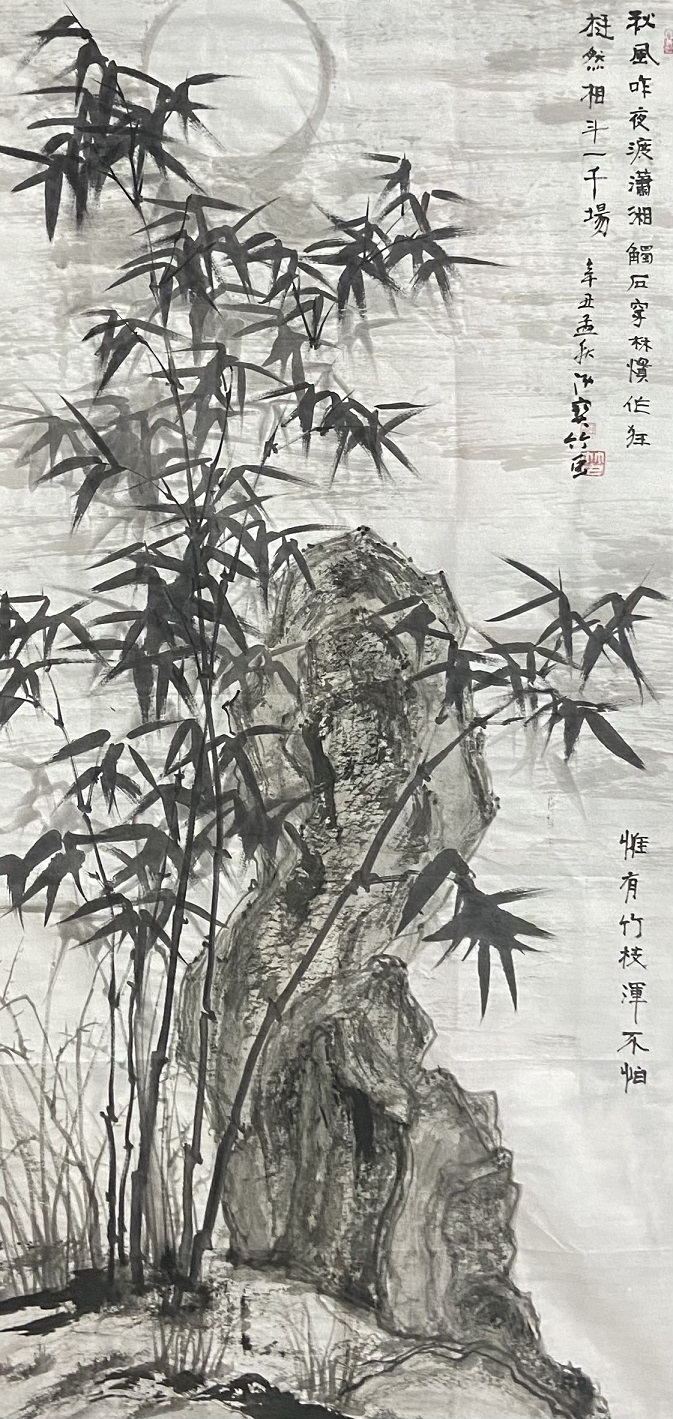 秋風昨夜渡瀟湘觸石穿林慣作狂
惟有竹枝渾不怕
挺然相斗一千場
辛丑孟秋